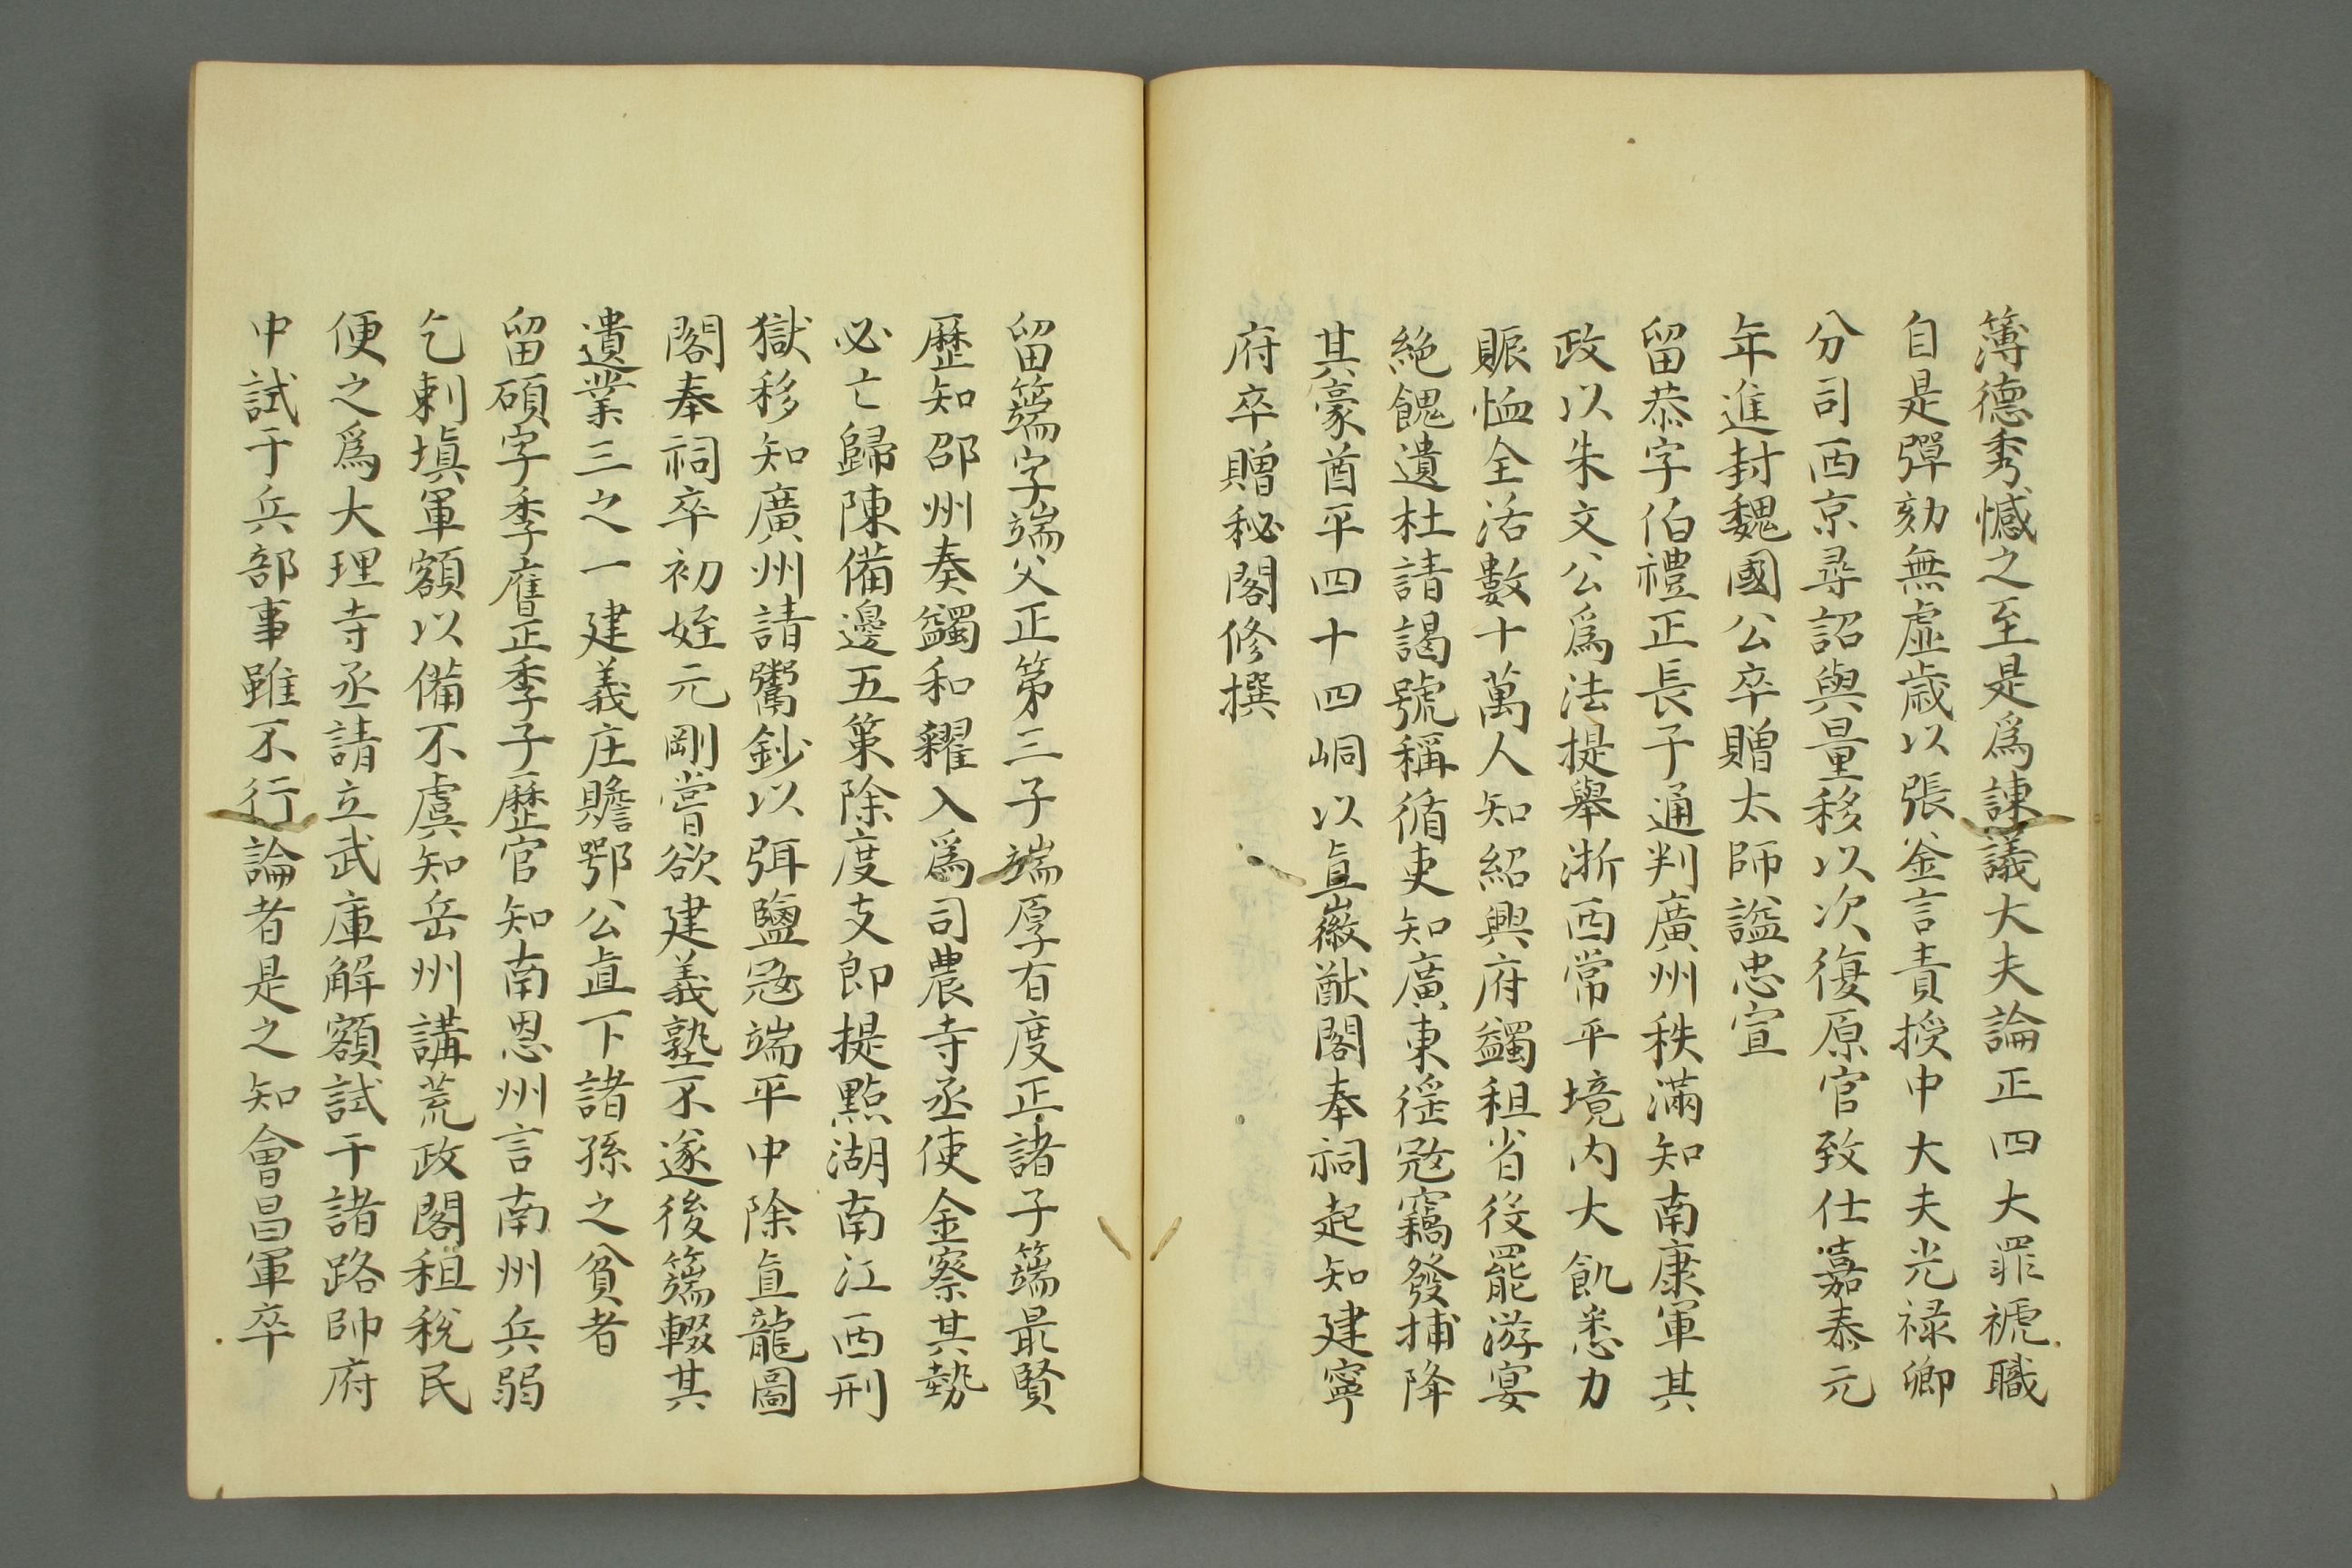 簿德秀憾之至是爲諫議大夫論正四大罪褫職
自是彈劾無虛歲以張釜言責授中大夫光祿卿
分司西京尋詔與量移以次復原官致仕嘉泰元
年進封魏國公卒贈太師謚忠宣
留恭字伯禮正長子通判廣州秩滿知南康軍其
政以朱文公爲法提舉浙西常平境內大飢悉力
賑恤全活數十萬人知紹興府蠲租省役罷游宴
絶餽遺杜請謁號稱循吏知廣東徭冦竊發捕降
其豪酋平四十四峒以直徽猷閣奉祠起知建寧
府卒贈秘閣修撰
留筠字端父正第三子端厚有度正諸子筠最賢
歷知邵州奏蠲和糴入爲司農寺丞使金察其勢
必亡歸陳備邊五策除度支郎提點湖南江西刑
獄移知廣州請鬻鈔以弭鹽冦端平中除直龍圖
閣奉祠卒初姪元剛嘗欲建義塾不遂後筠輟其
遺業三之一建義庄贍鄂公直下諸孫之貧者
留碩字季膺正季子歷官知南恩州言南州兵弱
乞剌塡軍額以備不虞知岳州講荒政閣租稅民
便之爲大理寺丞請立武庫解額試于諸路帥府
中試于兵部事雖不行論者是之知會昌軍卒